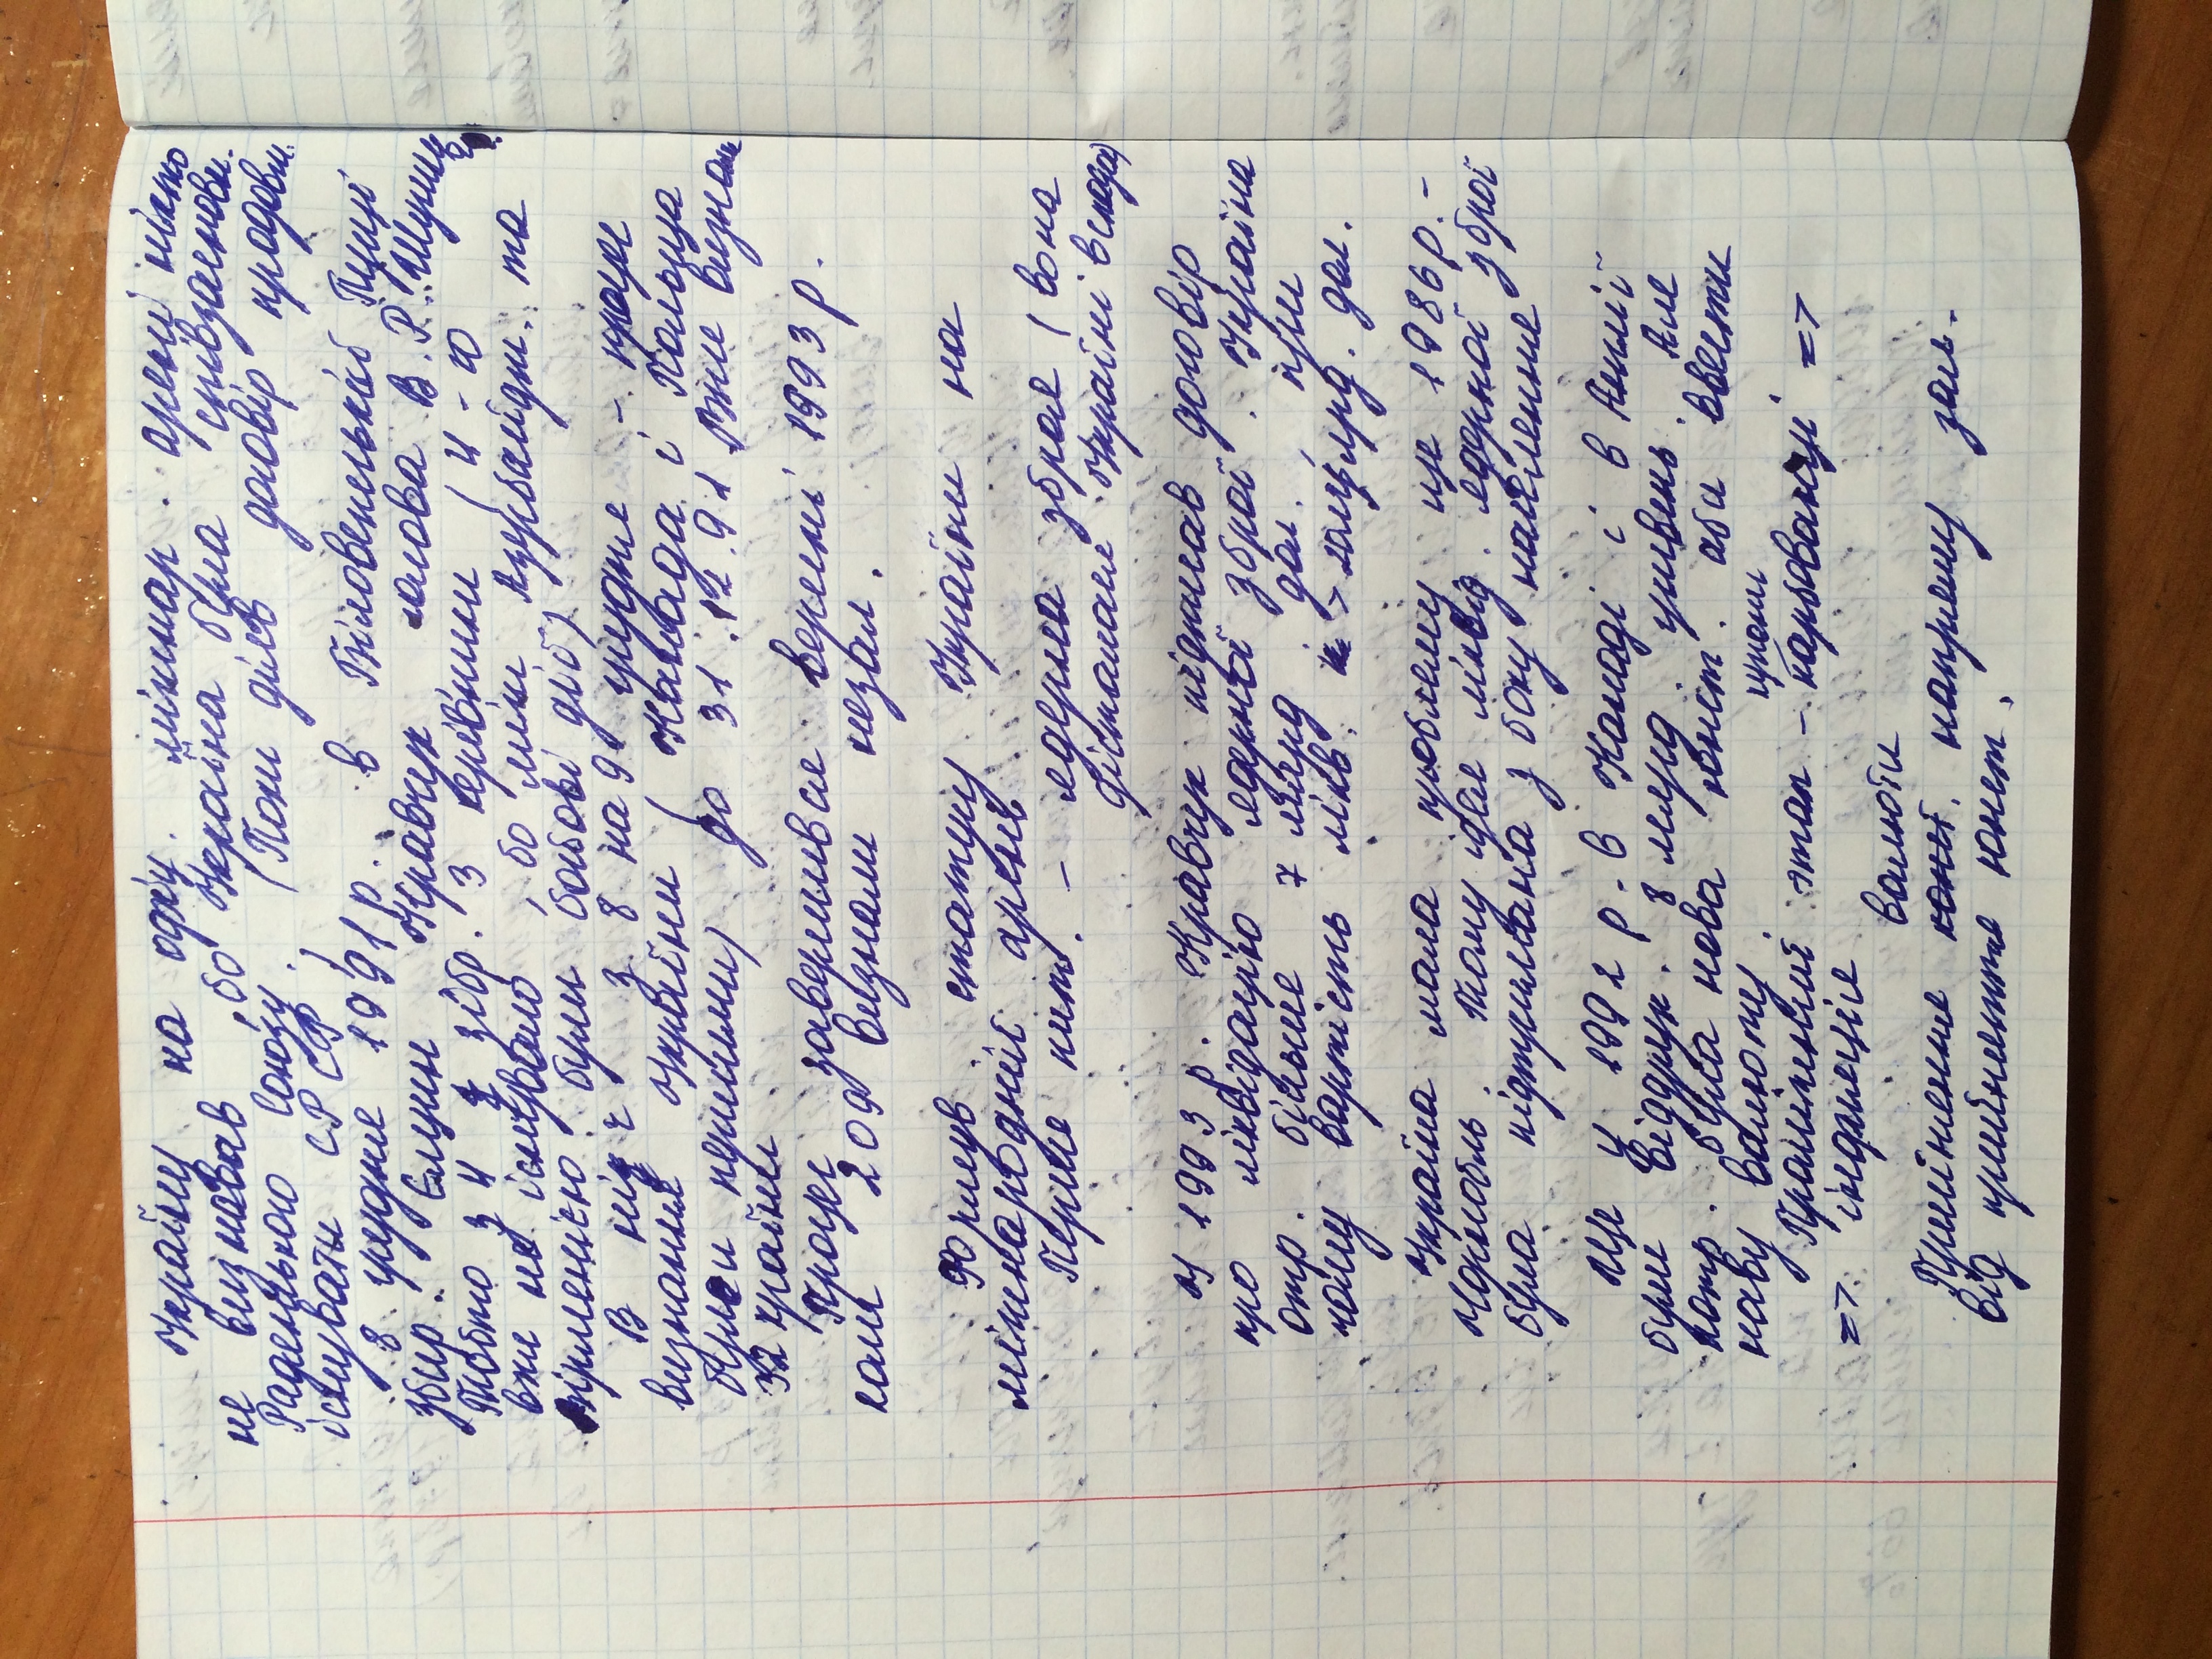 Україну на офіц. міжнар. арені ніхто
не визнавав, бо Україна була співзасновн.
Радянського Союзу. (Поки діяв договір продовж.
існувати СРСР)
8 грудня 1991 р. в Біловежській Пущі
збир. Єлцин, Кравчук, голова В.Р. Шушкев
Тобто з 4 зібр. 3 керівники (4-го
вже не існувало, бо між Азербайдж. та
вірменією були бойові дії)
В ніч з 8 на 9 грудня - процес
визнання України (Канада і Польща
були першими) до 31.12.91 вже визнали
32 країни
Процес завершився вересні 1993 р.
коли 209 визнали незал.
Формув. статусу України на
міжнародній арені.
Перше пит. - ядерна зброя (вона
дісталася Україні в спадок)
У 1993 р. Кравчук підписав договір
про ліквідацію ядерної зброї. Україна
отр. більше 7 млрд. дол., при
чому вартість лікв. > млрд. дол.
Україна мала проблему ще 1986 р. -
Чорнобль. Тому ідея ліквід. ядерної зброї
була підтримана з боку населення
Ще у 1992 р. в Канаді і в Англії
були віддрук. 8 млрд. гривень. Але
потр. була нова конст. аби ввести
нову валюту.
купони
Проміжний етап - карбованці =>
=> інфляція
валюти
Прийняння конст. напряму зал.
від прийняття конст.